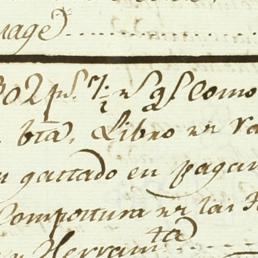 uage)
302 p.s 7½ r.s q.e como
bta, Libro en Va
gastado en pagar
Compostura en las
y Herramta